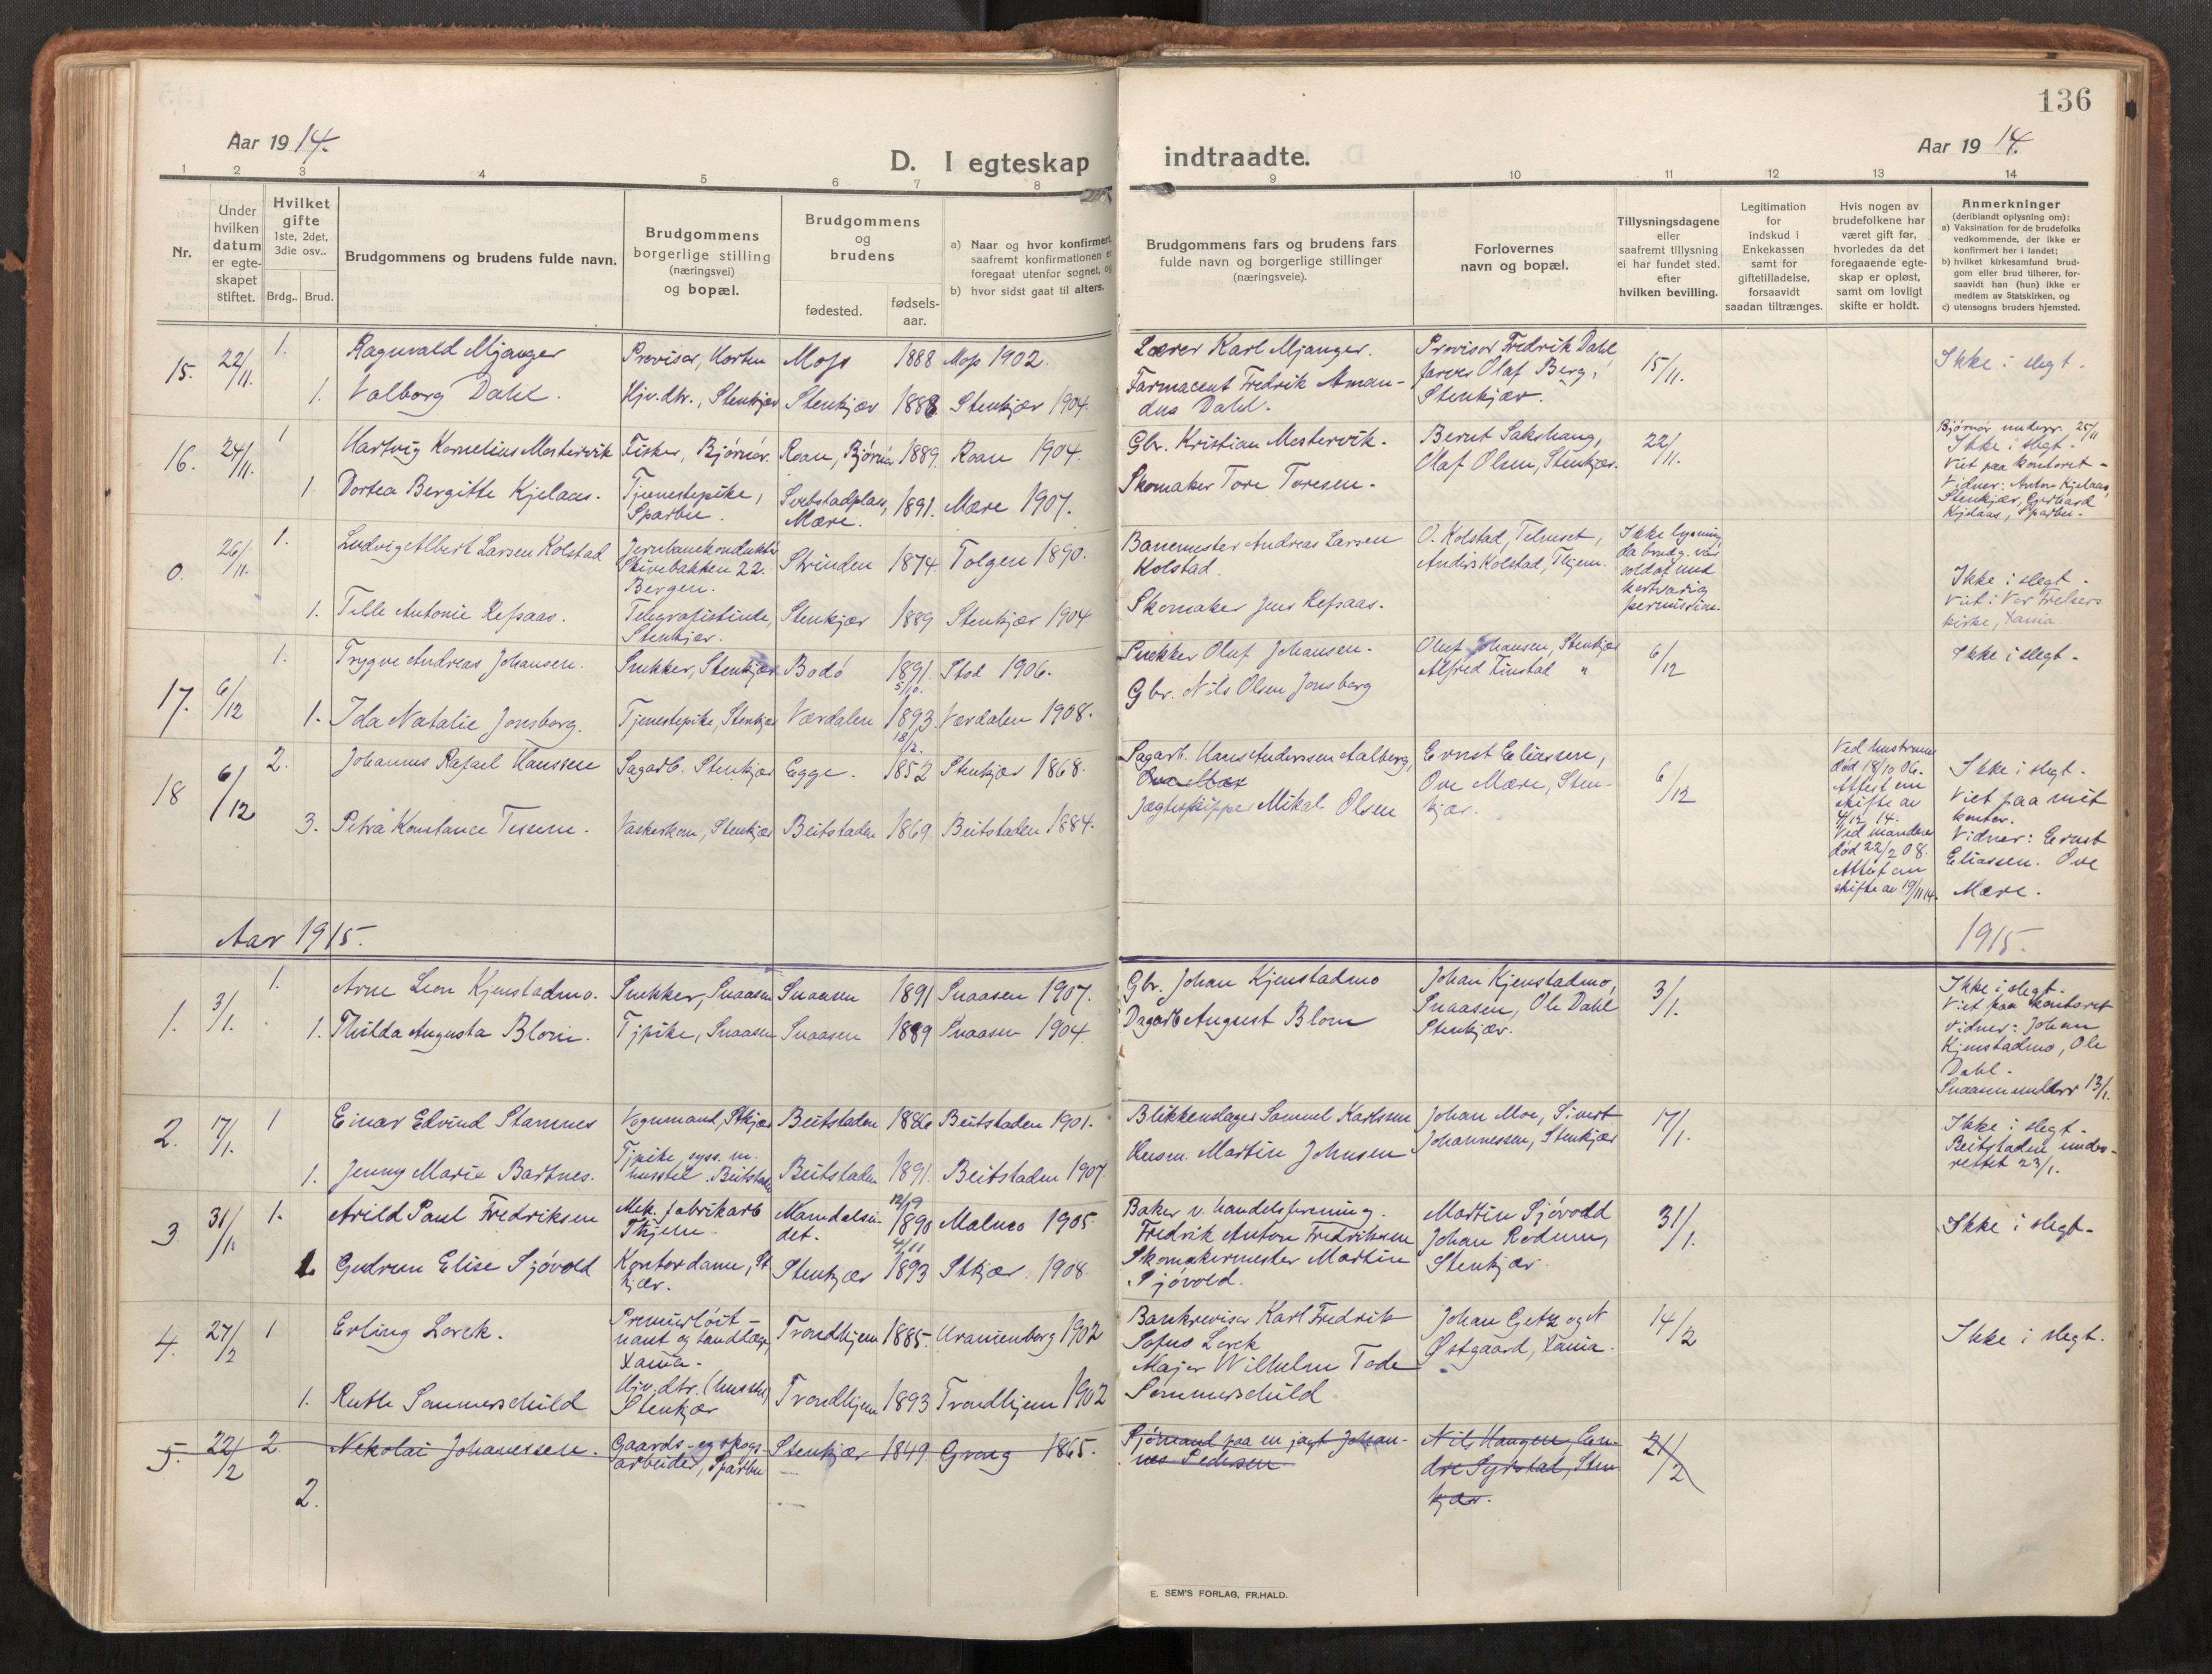 136
Aar 1914.
Aar 1914.
D. I egteskap indtraadte.
1 2 3 4 5 6 7 8 9 10 11 12 13 14
Nr.
Under hvilken datum er egteskapet stiftet.
Hvilket gifte
1ste, 2det, 3die osv..
Brdg.. Brud.
Brudgommens og brudens fulde navn.
Brudgommens borgerlige stilling (næringsvei) og bopæl.
Brudgommens og brudens
fødested.
fødsels-aar.
a) Naar og hvor konfirmert, saafremt konfirmationen er foregaat utenfor sognet, og
b) hvor sidst gaat til alters.
Brudgommens fars og brudens fars fulde navn og borgerlige stillinger (næringsveie).
Forlovernes navn og bopæl.
Tillysningsdagene eller saafremt tillysning ei har fundet sted, efter hvilken bevilling.
Legitimation for indskud i Enkekassen samt for giftetilladelse, forsaavidt saadan tiltrænges.
Hvis nogen av brudefolkene har været gift før, hvorledes da det foregaaende egteskap er opløst, samt om lovligt skifte er holdt.
Anmerkninger
(deriblandt oplysning om):
a) Vaksination for de brudefolks vedkommende, der ikke er konfirmert her i landet;
b) hvilket kirkesamfund brudgom eller brud tilhører, forsaavidt han (hun) ikke er medlem av Statskirken, og
c) utensogns bruders hjemsted.
15. 22/11. 1. Ragnvald Mjanger Provisor, Horten Moss 1888 Moss 1902. Lærer Karl Mjanger. Provisor Fredrik Dahl 15/11. Ikke i slegt.
1. Valborg Dahl. Hjv. dtr., Stenkjær Stenkjær 1888 Stenkjær 1904. Farmaceut Fredrik Amandus Dahl. farver Olaf Berg, Stenkjær.
16. 24/11. 1 Hartvig Kornelius Mestervik Fisker, Bjørnør. Roan, Bjørnør 1889. Roan 1904. Gbr. Kristian Mestervik. Bernt Sakshaug, Olaf Olsen, Stenkjær. 22/11. Bjørnør underr. 25/11
Ikke i slegt.
Viet paa kontoret -
Vidner: Anton Kjelaas, Stenkjær, Gerhard Kjelaas, Sparbu.
1 Dortea Bergitte Kjelaas. Tjenestepike, Sparbu. Mære. 1891. Mære 1907. Skomaker Tore Toresen.
0. 26/11. 1. Ludvig Albert Larsen Kolstad Jernbanekonduktør Skivebakken 22. Bergen. Strinden 1874. Tolgen 1890. Banemester Andreas Larsen Kolstad. O. Kolstad, Telneset, Anders Kolstad, Thjem. Ikke lysning, da brudg. var soldat med kortvarig permission.
1. Tille Antonie Refsaas. Telegrafistinde, Stenkjær. Stenkjær 1889 Stenkjær 1904 Skomaker Jens Refsaas. Ikke i slegt.
Viet i Vor Frelsers kirke, Xania
17. 6/12 1. Trygve Andreas Johansen. Snekker, Stenkjær Bodø 1891. 5/10. Stod 1906. Snekker Oluf Johansen. Oluf Johansen, Stenkjær Alfred Finstad " 6/12 Ikke i slegt.
1. Ida Natalie Jonsborg. Tjenestepike, Stenkjær Værdalen 1893. 18/12. Værdalen 1908. Gbr. Nils Olsen Jonsborg
18 6/12 2. Johannes Rafael Hanssen Sagarb. Stenkjær Egge. 1852 Stenkjær 1868. Sagarb. Hans Anderssen Aalberg, Ernst Eliassen, Ove Mære, Stenkjær. 6/12 Ved hustruens død 18/10 06. Attest om skifte av 4/12 14. Ikke i slegt.
Viet paa mit kontor.
3. Petra Konstance Tessem. Vaskerkone, Stenkjær Beitstaden 1869. Beitstaden 1884. Jægteskipper Mikal Olsen Ved mandens død 22/2 08. Attest om skifte av 19/11 14. Vidner: Ernst Eliassen. Ove Mære.
Aar 1915. 1915.
1. 3/1. 1. Arne Leon Kjenstadmo. Snekker, Snaasen Snaasen 1891 Snaasen 1907. Gbr. Johan Kjenstadmo Johan Kjenstadmo, Snaasen, Ole Dahl Stenkjær. 3/1. Ikke i slegt.
Viet paa kontoret
Vidner: Johan Kjenstadmo, Ole Dahl.
Snaasen underr 13/1.
1. Thilda Augusta Blom. Tjpike, Snaasen Snaasen 1889 Snaasen 1904. Dagarb August Blom
2. 17/1. 1 Einar Edvind Stamnes Vognmand, Stkjær Beitstaden 1886 Beitstaden 1901. Blikkenslager Samuel Karlsen Johan Moe, Sivert Johannessen, Stenkjær 17/1. Ikke i slegt.
Beitstaden underrettet 23/1.
1. Jenny Marie Bartnes. Tjpike, syss. m. husstel. Beitstaden Beitstaden 1891. Beitstaden 1907. Husm. Martin Johnsen
3 31/1. 1. Arild Paul Fredriksen Mek. fabrikarb Thjem. Namdalseidet. 12/9 1890 Malmo 1905. Baker v. handelsforening. Fredrik Anton Fredriksen Martin Sjøvold Johan Rodum, Stenkjær. 31/1. Ikke i slegt.
1. Gudrun Elise Sjøvold Kontordame, Stkjær. Stenkjær 4/11 1893 Stkjær. 1908. Skomakermester Martin Sjøvold.
4. 27/2 1 Erling Lorck. Premierløitnant og tandlæge, Xania. Trondhjem 1885. Uranienborg 1902 Bankrevisor Karl Fredrik Sofus Lorck Johan Getz og N Østgaard, Xania. 14/2 Ikke i slegt.
1. Ruth Sommerschild Hjv. dtr. (husstel) Stenkjær Trondhjem 1893 Trondhjem 1902 Major Wilhelm Tode Sommerschild
5. 22/2 2 Nekolai Johanessen. Gaards- og skogsarbeider, Sparbu Stenkjær 1849. Grong 1865. Sjømand paa en jagt Johannes Pedersen Nils Haugen, Stenkjær. 21/2
2.
E. SEM'S FORLAG, FR.HALD.